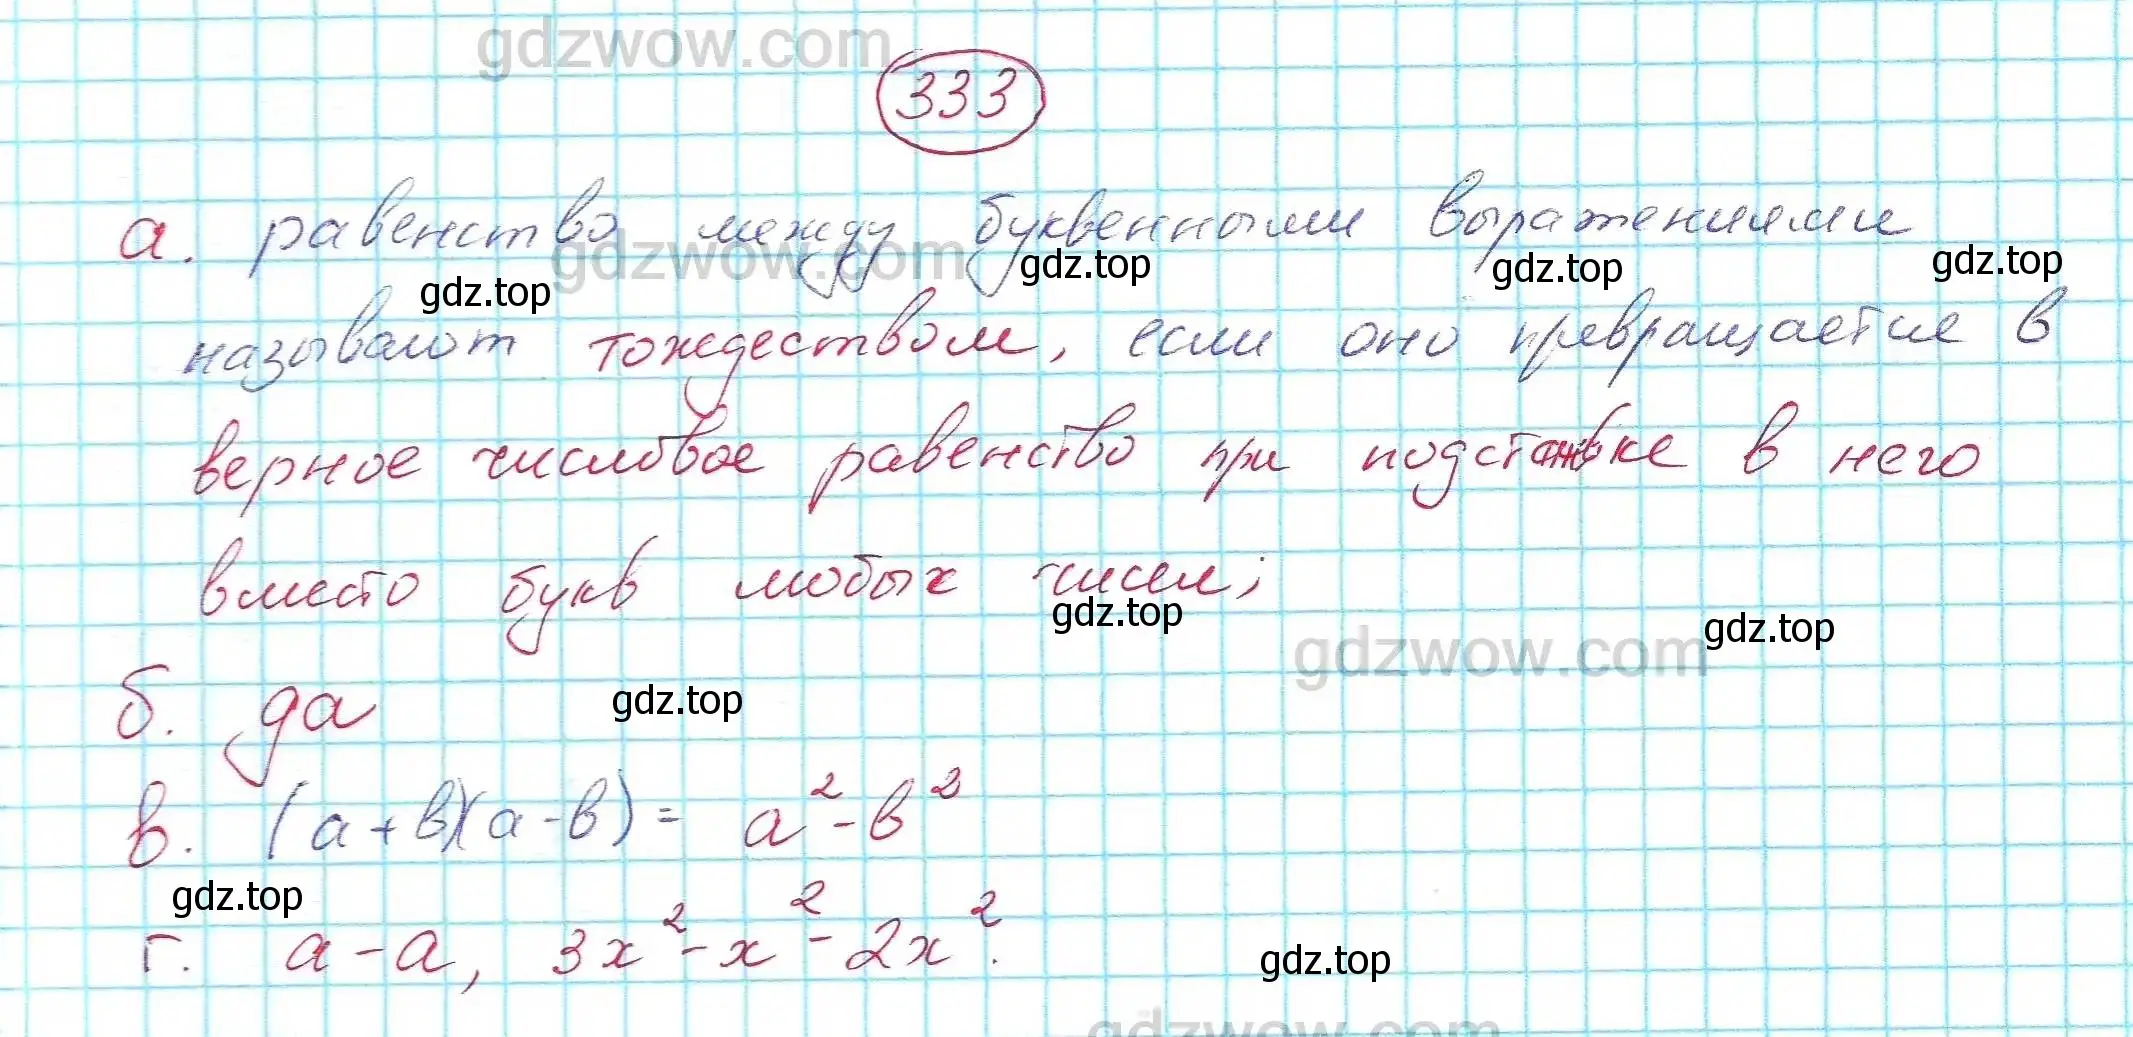 gdzwow.com
333
а. равенство между буквенными выражениями
gdzwow.com
gdz.top gdz.top gdz.top gdz.top
называют тождеством, если оно превращается в
верное числовое равенство при подстановке в него
вместо букв любых чисел;
gdz.top gdz.top
gdzwow.com
б. да gdz.top
в. (а+в)(а-в) = а²-в²
gdz.top
г. а-а, 3х²-х²-2х².
gdz.top
gdzwow.com